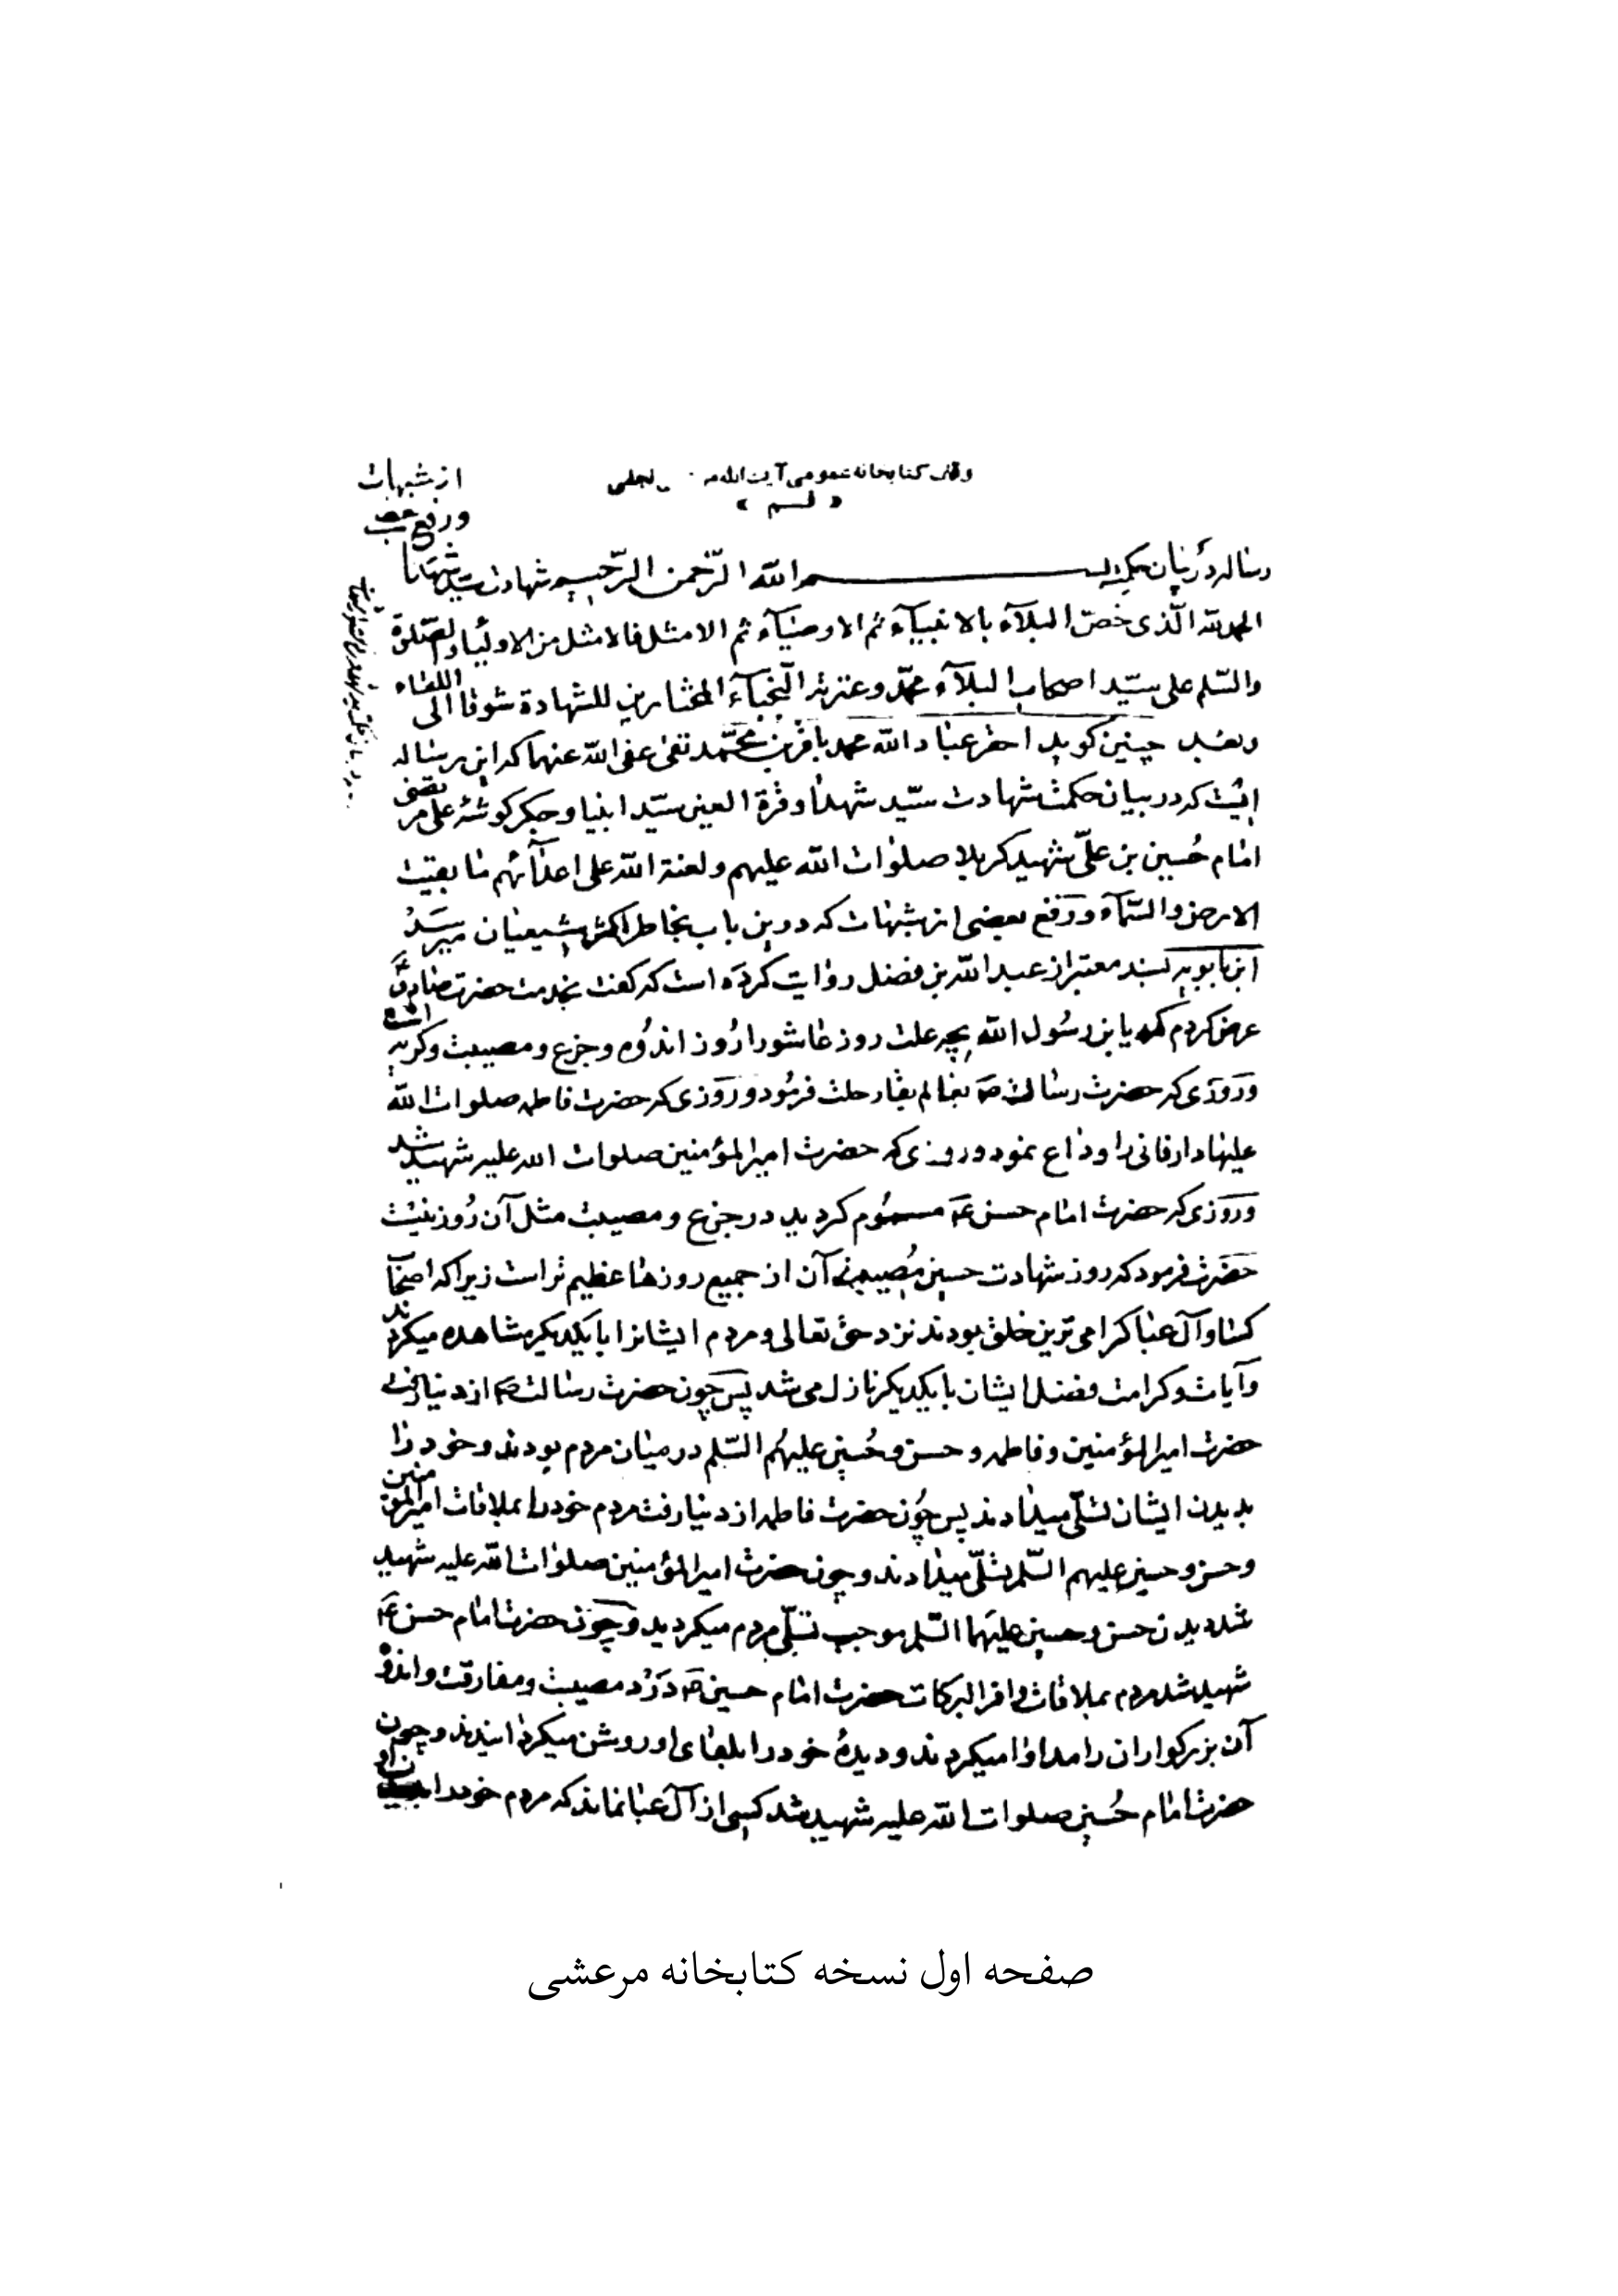 وقف کتابخانه عمومی آیت الله نجفی
« قم »
از شبهات
و رفع بعض
رساله در بیان حکمت بسم الله الرّحمن الرّحیم شهادت سید شهدا
الحمد لله الّذی خصّ البلآء بالانبیآء ثم الاوصیآء ثم الامثل فالامثل من الاولیآء والصّلوة
والسّلم علی سیّد اصحاب البلآء محمّد و عترته النّجبآء المختارین للشهادة شوقا الی اللقاء
وبعد چنین کوید احقر عباد الله محمد باقر بن محمّد تقی عفی الله عنهما که این رساله
ایست که در بیان حکمت شهادت سیّد شهدا و قرة العین سیّد انبیا و جکر کوشهٔ علی مرتضی
امام حُسین بن علیّ شهید کربلا صلوات الله علیهم و لعنة الله علی اعدآئهم ما بقیت
الارض والسّمآء و رفع بعضی از شبهات که درین باب بخاطر اکثر شیعیان میرسد
ابن بابویه بسند معتبر از عبد الله بن فضل روایت کرده است که کفت بخدمت حضرت صادق
عرض کردم که یابن رسُول الله بچه علت روز عاشورا رُوز اندُوه و جزع و مصیبت و کریه است
و روزی که حضرت رسالت ص بعالم بقا رحلت فرمُود و روزی که حضرت فاطمه صلوات الله
علیها دار فانی را وداع نمود و روزی که حضرت امیر المؤمنین صلوات الله علیه شهید شد
و روزی که حضرت امام حسن ع مسمُوم کردید در جزع و مصیبت مثل آن رُوز نیست
حضرت فرمود که روز شهادت حسین مُصیبت آن از جمیع روزها عظیم تر است زیرا که اصحاب
کسا و آل عبا کرامی ترین خلق بودند نزد حق تعالی و مردم ایشانرا با یکدیکر مشاهده میکردند
و آیات و کرامت و فضل ایشان با یکدیکر نازل می شد پس چون حضرت رسالت ص از دنیا رفت
حضرت امیر المؤمنین و فاطمه و حسن و حُسین علیهُم السّلم در میان مردم بودند و خود را
بدیدن ایشان تسلّی میدادند پس چُون حضرت فاطمه از دنیا رفت مردم خود را بملاقات امیر المؤمنین
و حسن و حسین علیهم السّلم تسلّی میدادند و چون حضرت امیر المؤمنین صلوات الله علیه شهید
شد دیدن حسن و حسین علیهما السّلم موجب تسلّی مردم میکردید و چون حضرت امام حسن ع
شهید شد مردم بملاقات وافر البرکات حضرت امام حسین ص درد مصیبت و مفارقت و اندوه
آن بزرکواران را مداوا میکردند و دیدهٔ خود را بلقای او روشن میکردانیدند و چون
حضرت امام حُسین صلوات الله علیه شهید شد کسی از آل عبا نماند که مردم خود را
صفحه اول نسخه کتابخانه مرعشی